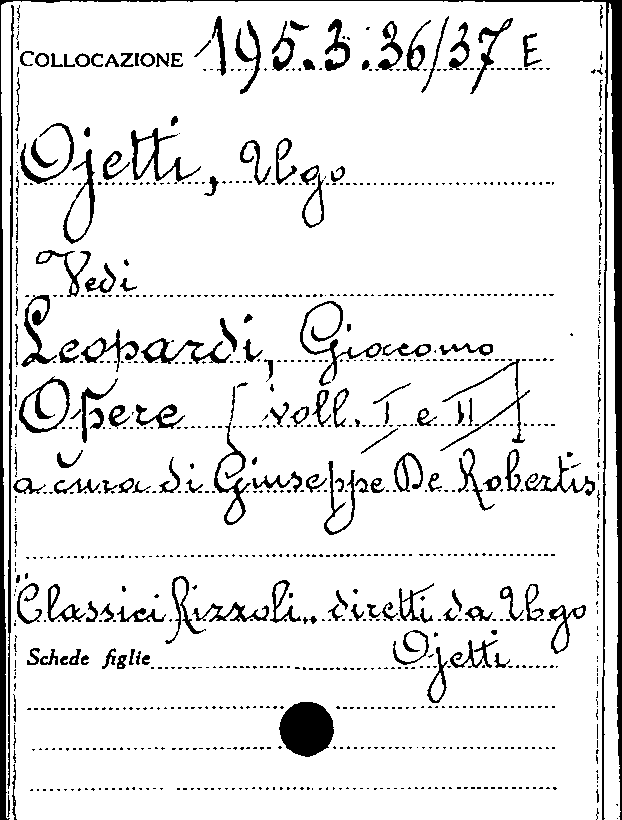 COLLOCAZIONE 195.3.36/37 E
Ojetti, Ugo
Vedi
Leopardi, Giacomo
Opere [voll. I e II]
a cura di Giuseppe De Robertis
"Classici Rizzoli„ diretti da Ugo
Ojetti
Schede figlie